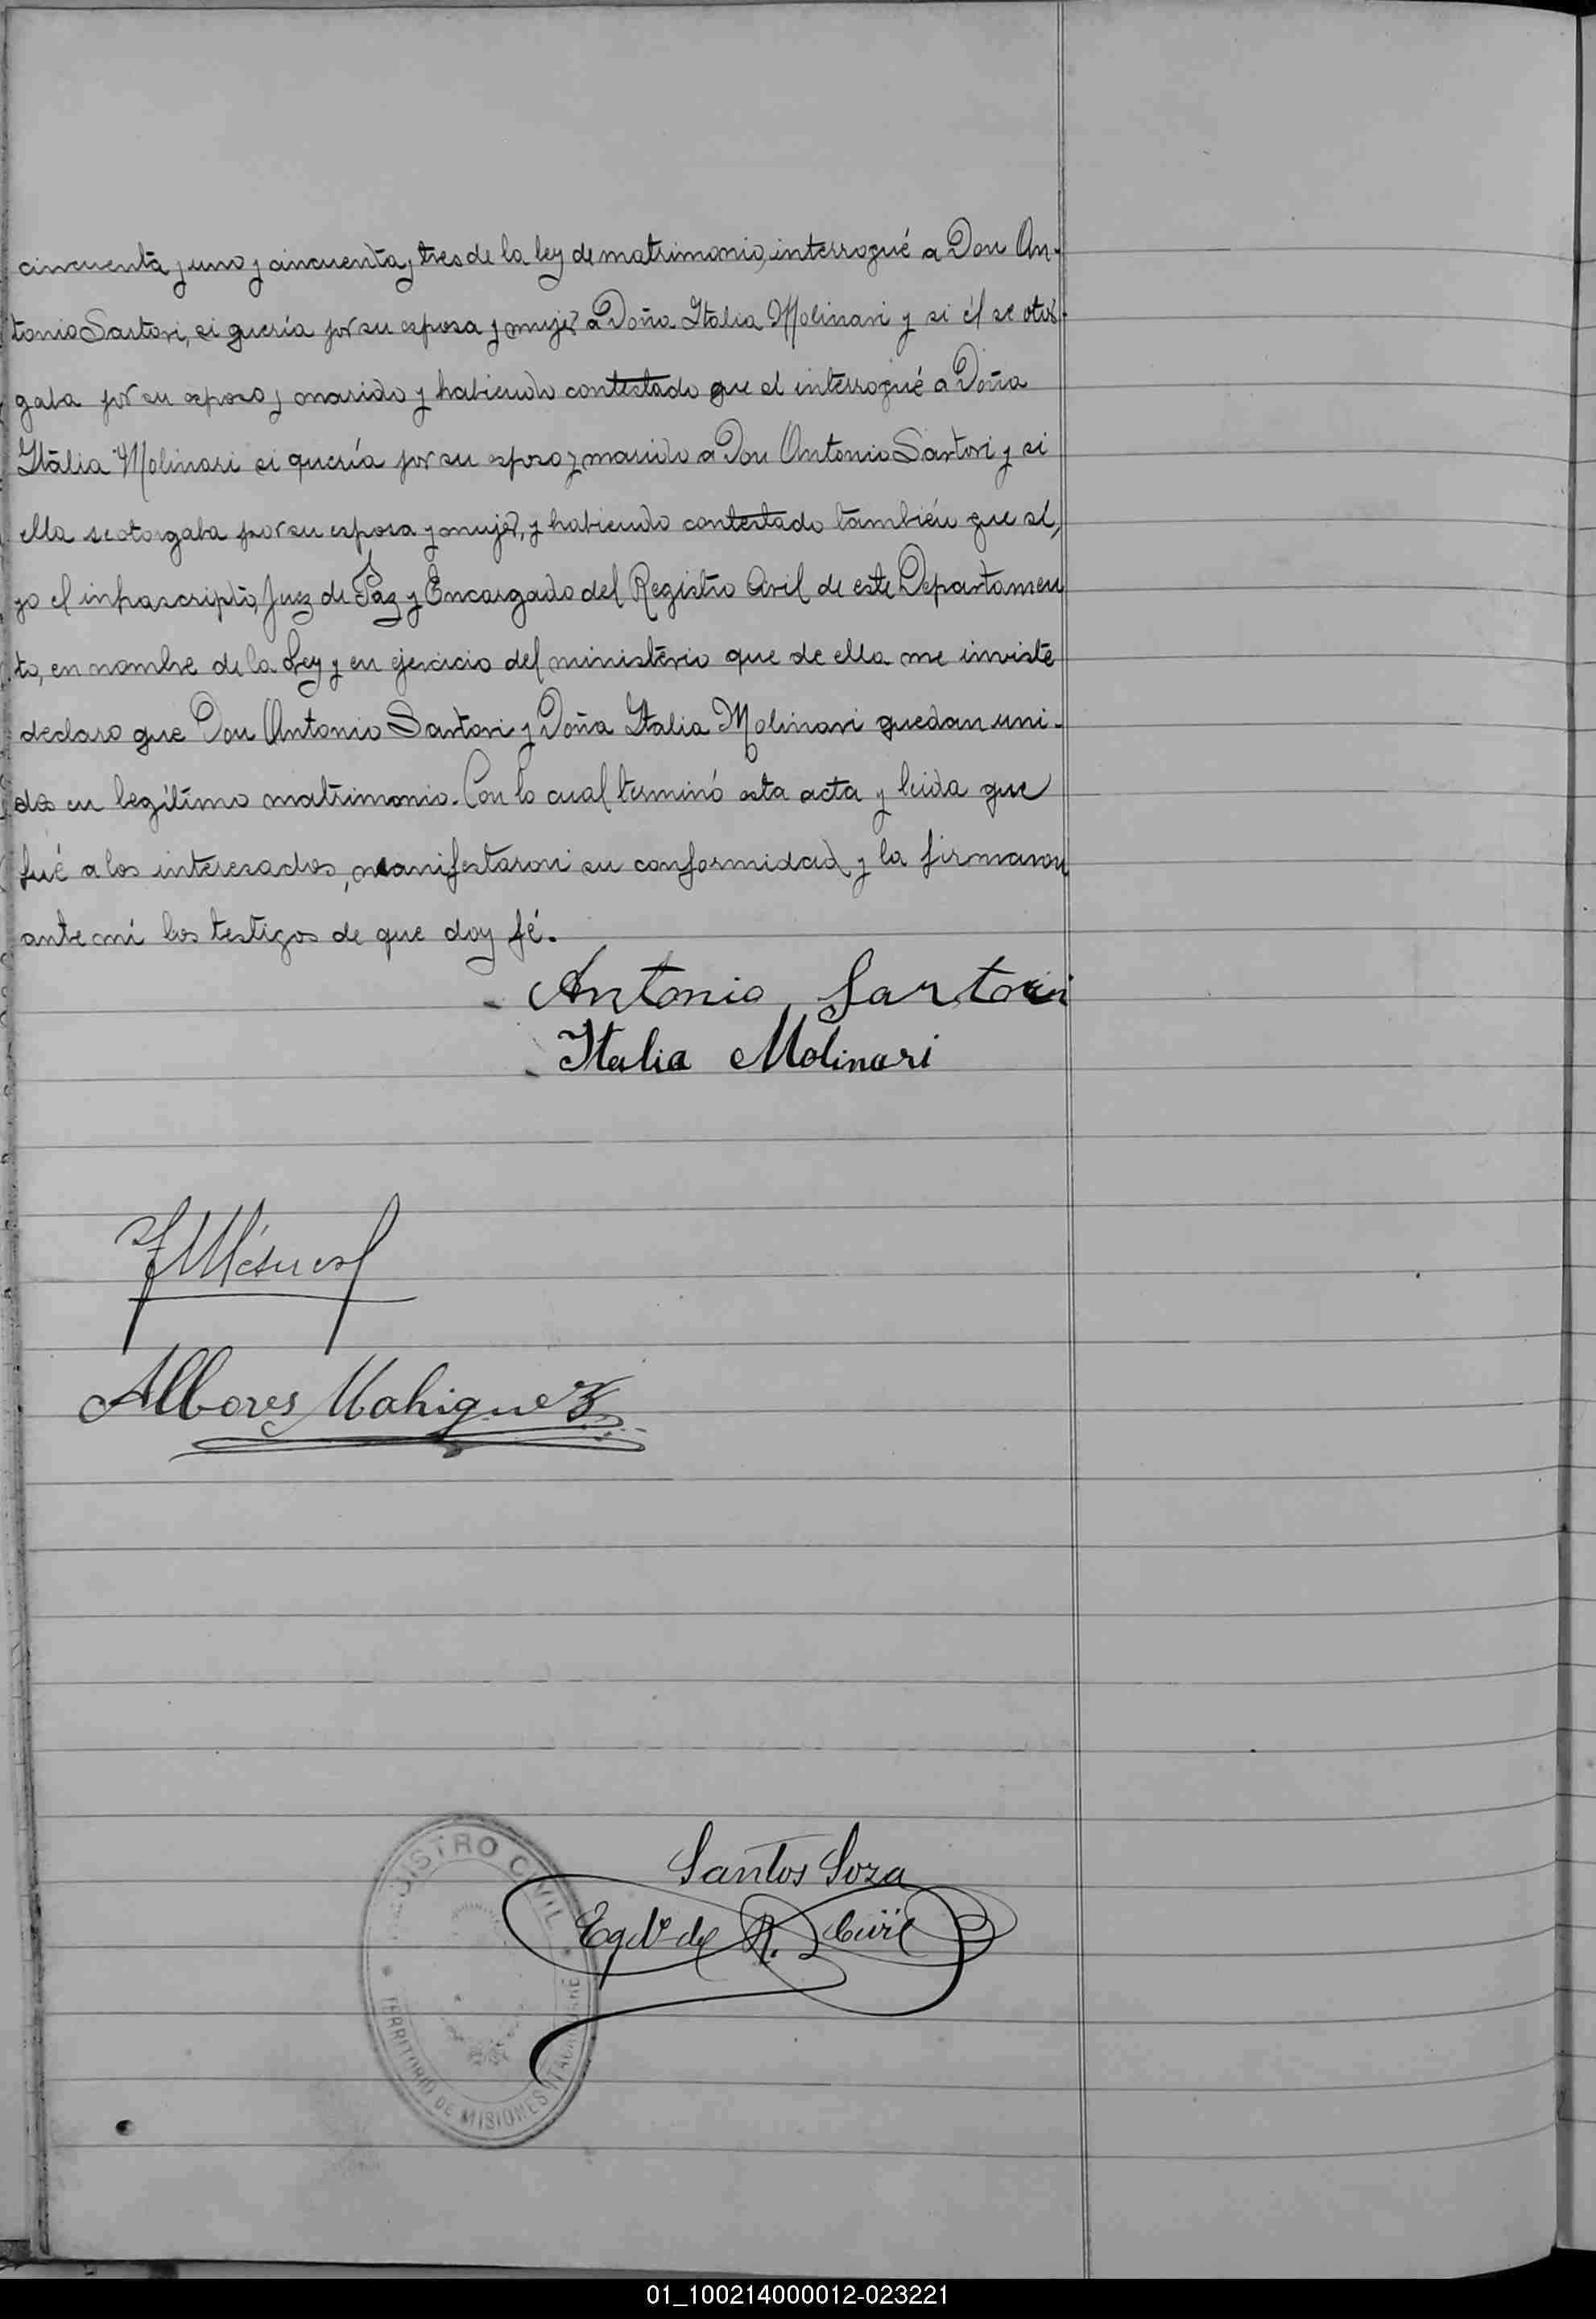 cincuenta y uno y cincuenta y tres de la ley de matrimonio, interrogué a Don An-
tonio Sartori, si quería por su esposa y mujer a Doña Italia Molinari y si él se otor-
gaba por su esposo y marido y habiendo contestado que sí interrogué a Doña
Italia Molinari si quería por su esposo y marido a Don Antonio Sartori y si
ella se otorgaba por su esposa y mujer, y habiendo contestado también que sí,
yo el infrascripto, Juez de Paz y Encargado del Registro Civil de este Departamen
to, en nombre de la Ley y en ejercicio del ministerio que de ella me inviste
declaro que Don Antonio Sartori y Doña Italia Molinari quedan uni-
dos en legítimo matrimonio. Con lo cual terminó esta acta y leida que
fué a los interesados, manifestaron su conformidad y la firmaron
ante mí los testigos de que doy fé.
Antonio Sartori
Italia Molinari
Mahiguez
Santos Soza
Egdo. del R. Civil
REGISTRO CIVIL
TERRITORIO DE MISIONES
01_100214000012-023221